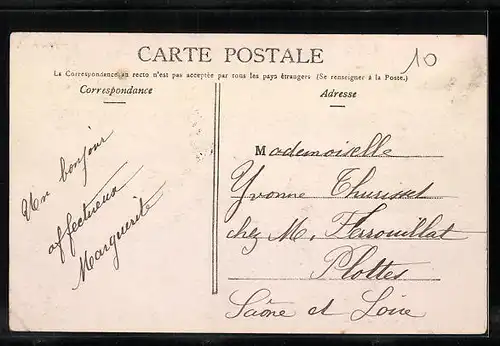 CARTE POSTALE
10
La Correspondance au recto n'est pas acceptée par tous les pays étrangers (Se renseigner à la Poste.)
Correspondance
Adresse
Un bonjour
affectueux
Marguerite
Mademoiselle
Yvonne
chez M. Ferrouillat
Plottes
Saône et Loire